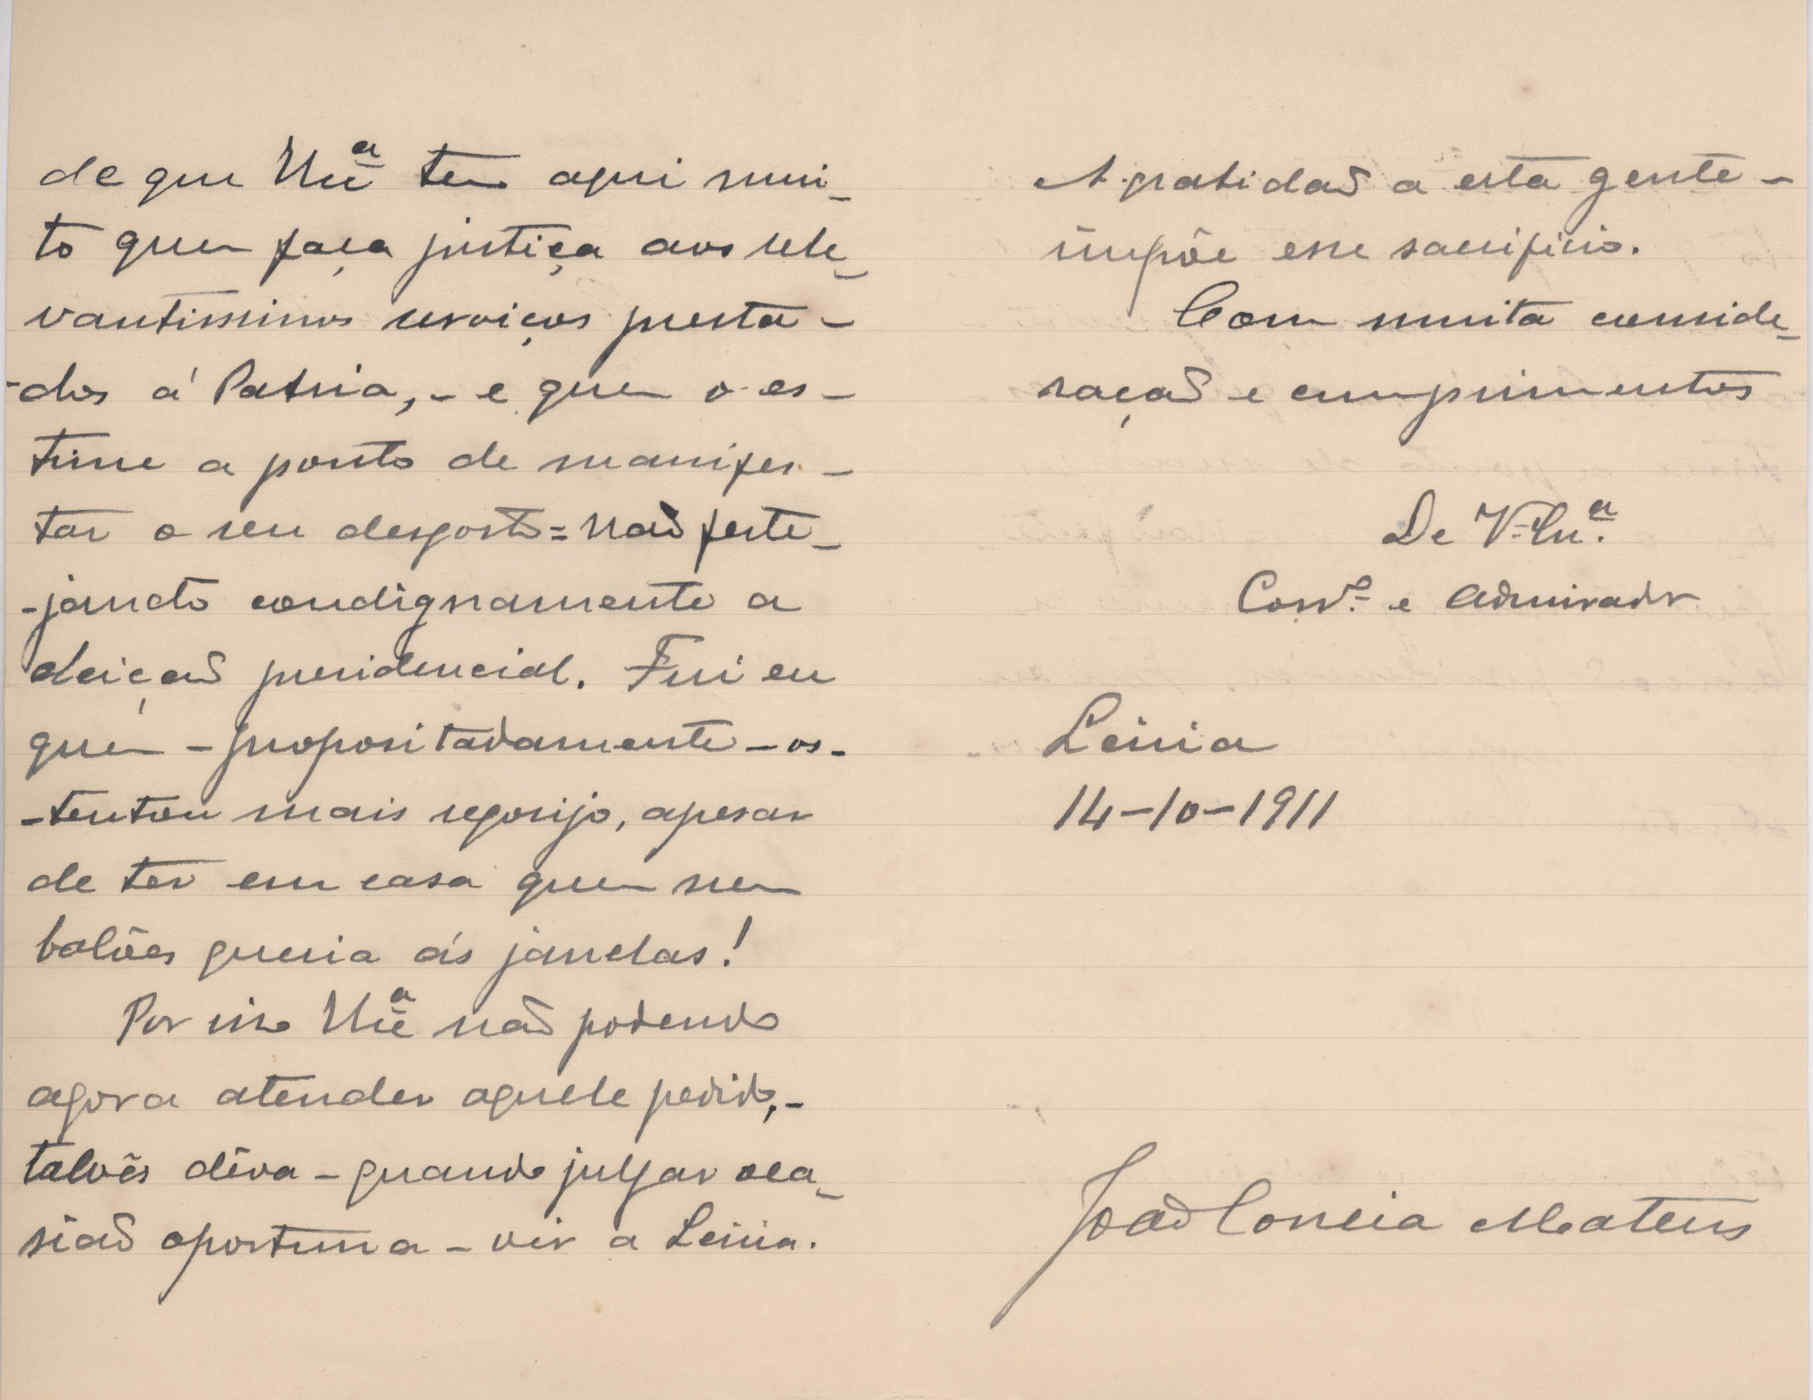 de que V.Ex.ª tem aqui mui-
to quem faça justiça aos rele-
vantissimos serviços presta-
-dos á Patria, - e quem o es-
time a ponto de manifes-
tar o seu desgosto = não feste-
-jando condignamente a
eleição presidencial. Fui eu
quem - propositadamente - os-
-tentou mais regosijo, apesar
de ter em casa quem nem
balões queria ás janelas!
Por isso V.Ex.ª não podendo
agora atender aquele pedido, -
talvês déva - quando julgar oca-
sião oportuna - vir a Leiria.
A gratidão a esta gente -
impõe esse sacrificio.
Com muita conside-
ração e cumprimentos
De V. Ex.ª
Corr.º e admirador
Leiria
14-10-1911
João Correia Mateus